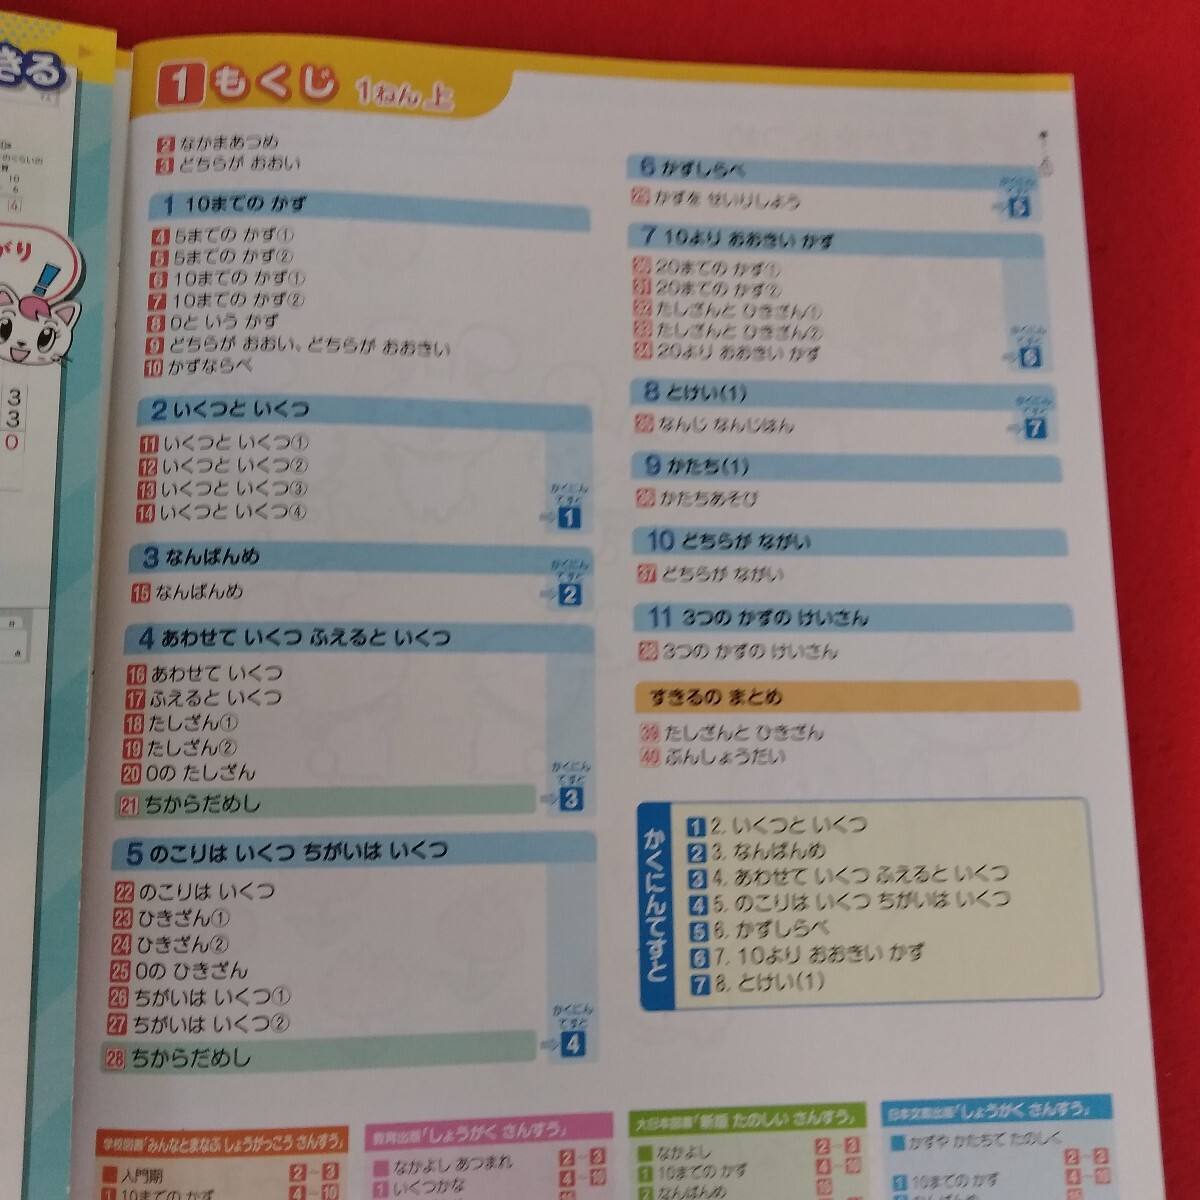 きる
がり
3
3
0
1 もくじ 1ねん 上
2 なかまあつめ
3 どちらが おおい
1 10までの かず
4 5までの かず①
5 5までの かず②
6 10までの かず①
7 10までの かず②
8 0と いう かず
9 どちらが おおい、どちらが おおきい
10 かずならべ
2 いくつと いくつ
11 いくつと いくつ①
12 いくつと いくつ②
13 いくつと いくつ③
14 いくつと いくつ④
かくにん
てすと
1
3 なんばんめ
15 なんばんめ
かくにん
てすと
2
4 あわせて いくつ ふえると いくつ
16 あわせて いくつ
17 ふえると いくつ
18 たしざん①
19 たしざん②
20 0の たしざん
21 ちからだめし
かくにん
てすと
3
5 のこりは いくつ ちがいは いくつ
22 のこりは いくつ
23 ひきざん①
24 ひきざん②
25 0の ひきざん
26 ちがいは いくつ①
27 ちがいは いくつ②
28 ちからだめし
かくにん
てすと
4
6 かずしらべ
29 かずを せいりしよう
かくにん
てすと
5
7 10より おおきい かず
30 20までの かず①
31 20までの かず②
32 たしざんと ひきざん①
33 たしざんと ひきざん②
34 20より おおきい かず
かくにん
てすと
6
8 とけい(1)
35 なんじ なんじはん
かくにん
てすと
7
9 かたち(1)
36 かたちあそび
10 どちらが ながい
37 どちらが ながい
11 3つの かずの けいさん
38 3つの かずの けいさん
すきるの まとめ
39 たしざんと ひきざん
40 ぶんしょうだい
かくにんてすと
1 2. いくつと いくつ
2 3. なんばんめ
3 4. あわせて いくつ ふえると いくつ
4 5. のこりは いくつ ちがいは いくつ
5 6. かずしらべ
6 7. 10より おおきい かず
7 8. とけい(1)
学校図書「みんなとまなぶ しょうがっこう さんすう」
入門期 2～3
1 10までの かず 4～10
教育出版「しょうがく さんすう」
なかよし あつまれ 2～3
1 いくつかな 4～10
大日本図書「新版 たのしい さんすう」
なかよし 2～3
1 10までの かず 4～10
2 なんばんめ 15
日本文教出版「しょうがく さんすう」
かずや かたちで たのしく 2～3
1 10までの かず 4～10